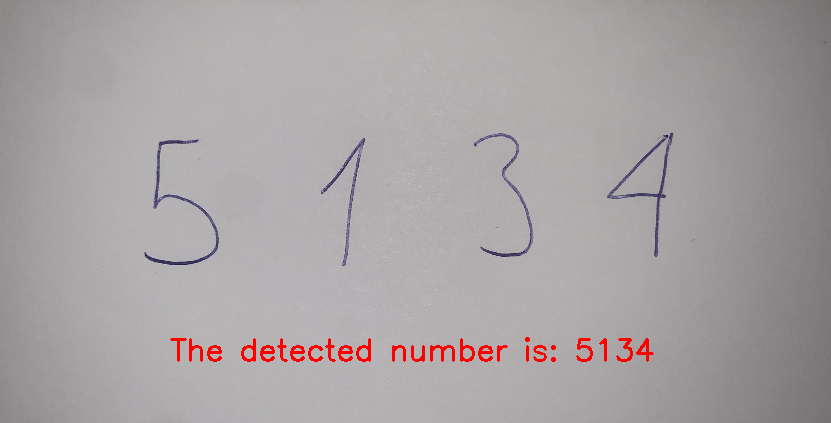 5 1 3 4
The detected number is: 5134